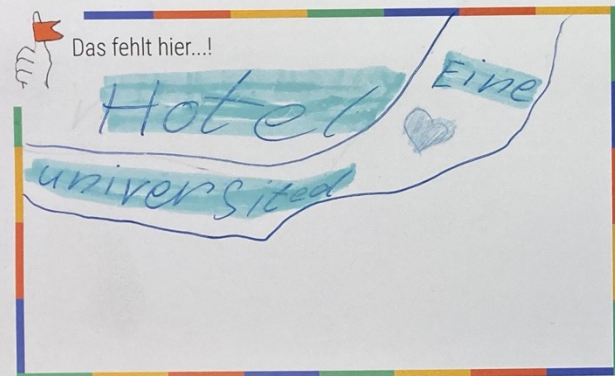 Das fehlt hier...!
Hotel
Eine
universited